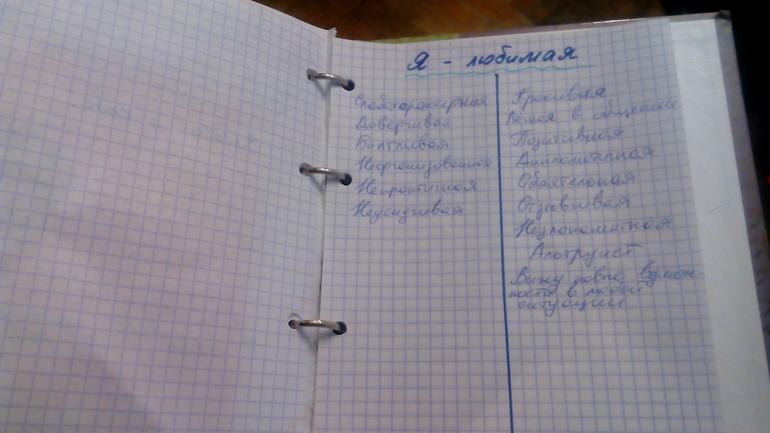 Я - любимая
Слабохарактерная
Доверчивая
Болтливая
Неорганизованная
Непрактичная
Неусидчивая
Красивая
Легкая в общении
Позитивная
Дипломатичная
Обаятельная
Отзывчивая
Незлопамятная
Альтруист
Вижу новые возмож-
ности в любой
ситуации